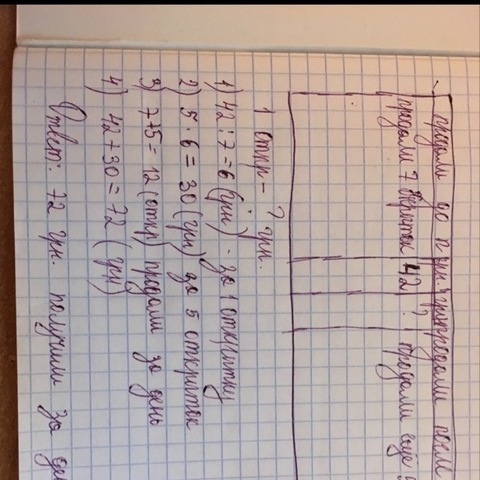 продали до п грн. ? грн продали после
продали 7 открыток 42 ? продали еще 5
1 откр - ? грн.
1) 42 : 7 = 6 (грн) - за 1 открытку
2) 5 · 6 = 30 (грн) за 5 открыток
3) 7+5 = 12 (откр) продали за день
4) 42 + 30 = 72 (грн)
Ответ: 72 грн. получили за де